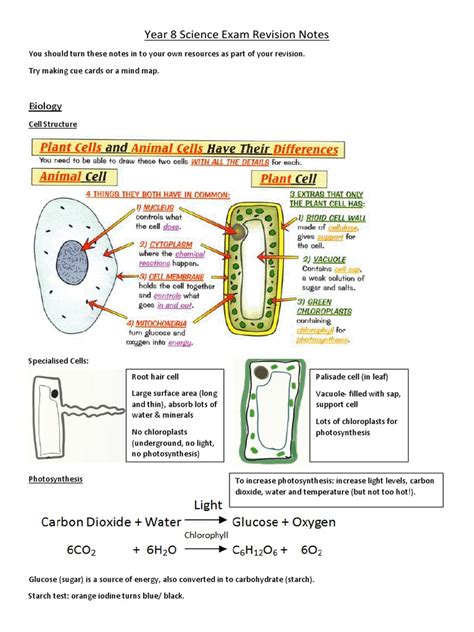 Year 8 Science Exam Revision Notes
You should turn these notes in to your own resources as part of your revision.
Try making cue cards or a mind map.
Biology
Cell Structure
Plant Cells and Animal Cells Have Their Differences
You need to be able to draw these two cells WITH ALL THE DETAILS for each.
Animal Cell
4 THINGS THEY BOTH HAVE IN COMMON:
1) NUCLEUS
controls what
the cell does.
2) CYTOPLASM
where the chemical
reactions happen.
3) CELL MEMBRANE
holds the cell together
and controls what
goes in and out.
4) MITOCHONDRIA
turn glucose and
oxygen into energy.
Plant Cell
3 EXTRAS THAT ONLY
THE PLANT CELL HAS:
1) RIGID CELL WALL
made of cellulose,
gives support for
the cell.
2) VACUOLE
Contains cell sap,
a weak solution of
sugar and salts.
3) GREEN
CHLOROPLASTS
containing
chlorophyll for
photosynthesis.
Specialised Cells:
Root hair cell
Large surface area (long
and thin), absorb lots of
water & minerals
No chloroplasts
(underground, no light,
no photosynthesis)
Palisade cell (in leaf)
Vacuole- filled with sap,
support cell
Lots of chloroplasts for
photosynthesis
Photosynthesis
To increase photosynthesis: increase light levels, carbon
dioxide, water and temperature (but not too hot!).
Light
Carbon Dioxide + Water → Glucose + Oxygen
Chlorophyll
6CO₂ + 6H₂O → C₆H₁₂O₆ + 6O₂
Glucose (sugar) is a source of energy, also converted in to carbohydrate (starch).
Starch test: orange iodine turns blue/ black.